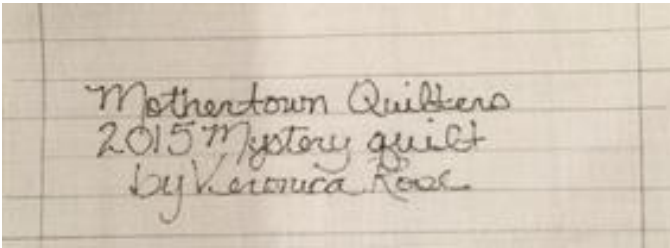 Mothertown Quilters
2015 Mystery quilt
by Veronica Rose